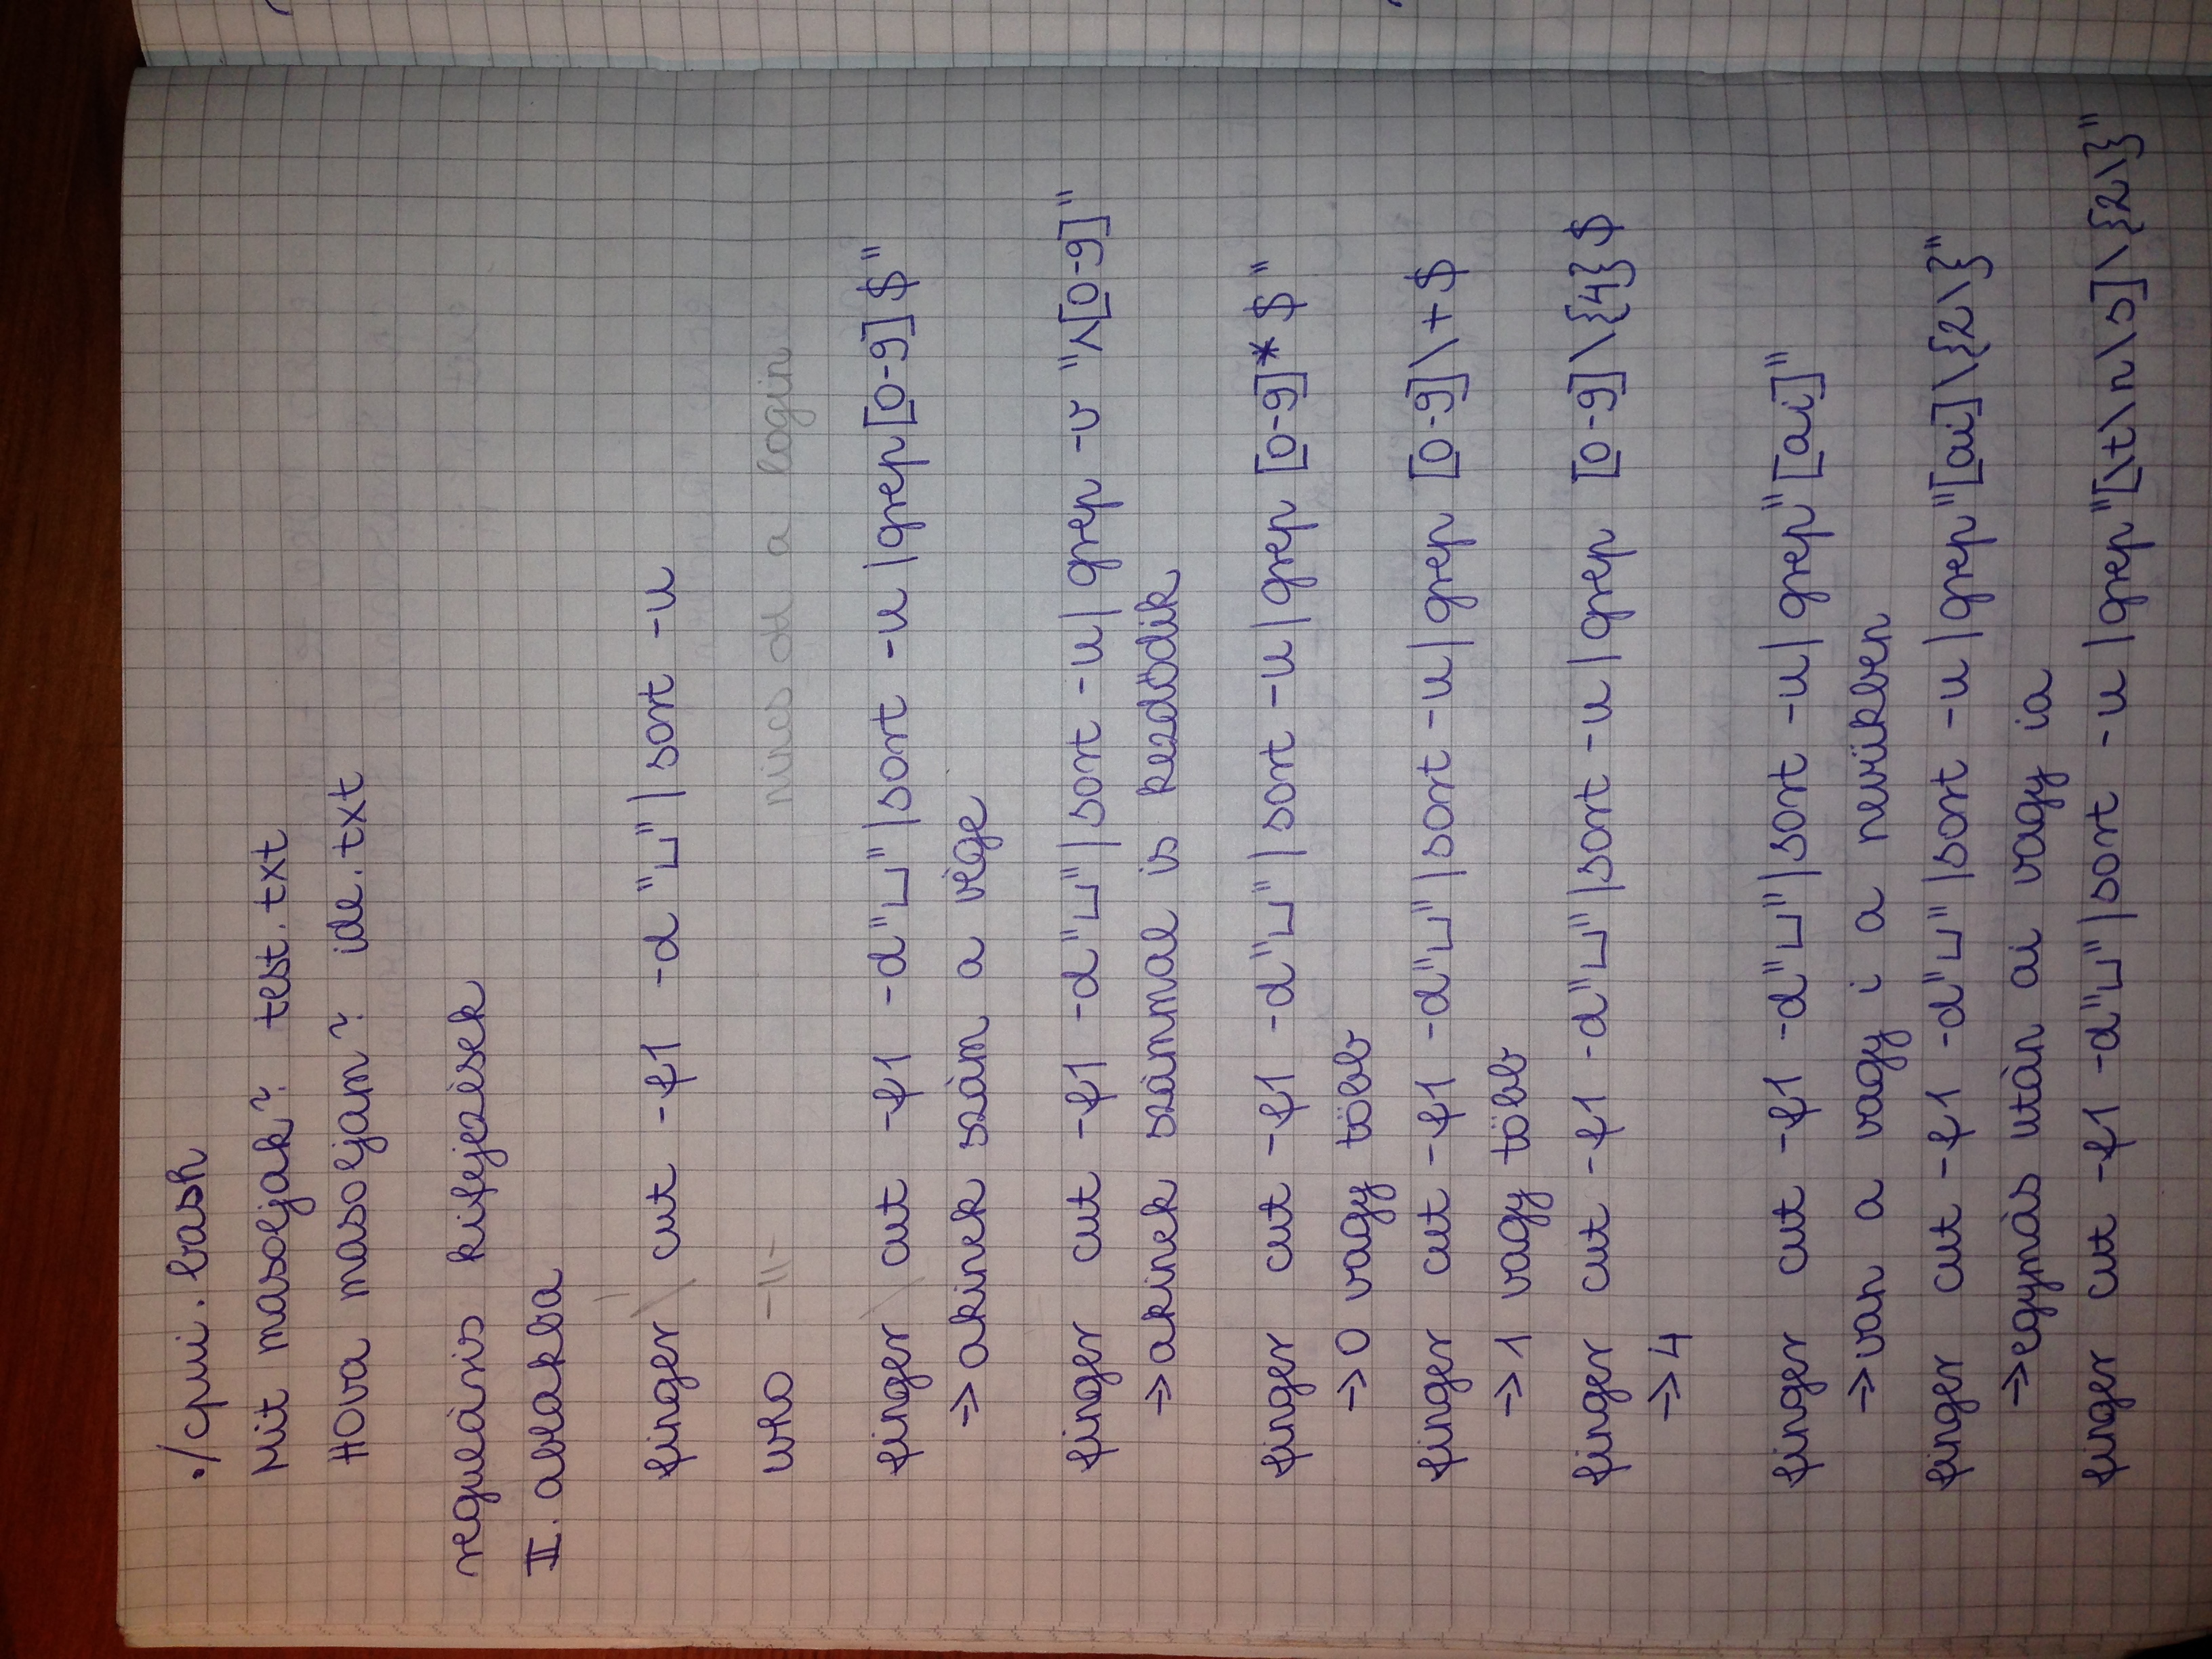 ./cpui.bash
Mit masoljak? test.txt
Hova masoljam? ide.txt
reguláris kifejezések
II. ablakba
finger | cut -f1 -d "␣" | sort -u
who -||- nincs ott a login
finger | cut -f1 -d"␣" |sort -u |grep[0-9]$"
→ akinek szám a vége
finger cut -f1 -d"␣" | sort -u | grep -v "^[0-9]"
→ akinek számmal is kezdődik
finger cut -f1 -d"␣" | sort -u | grep [0-9]*$"
→ 0 vagy több
finger cut -f1 -d"␣" |sort -u | grep [0-9]\+$
→ 1 vagy több
finger cut -f1 -d"␣" |sort -u | grep [0-9]\{4}$
→ 4
finger cut -f1 -d"␣" |sort -u | grep"[ai]"
→ van a vagy i a nevükben
finger cut -f1 -d"␣" |sort -u |grep"[ai]\{2\}"
→ egymás után ai vagy ia
finger cut -f1 -d"␣" |sort -u |grep"[\t\n\s]\{2\}"